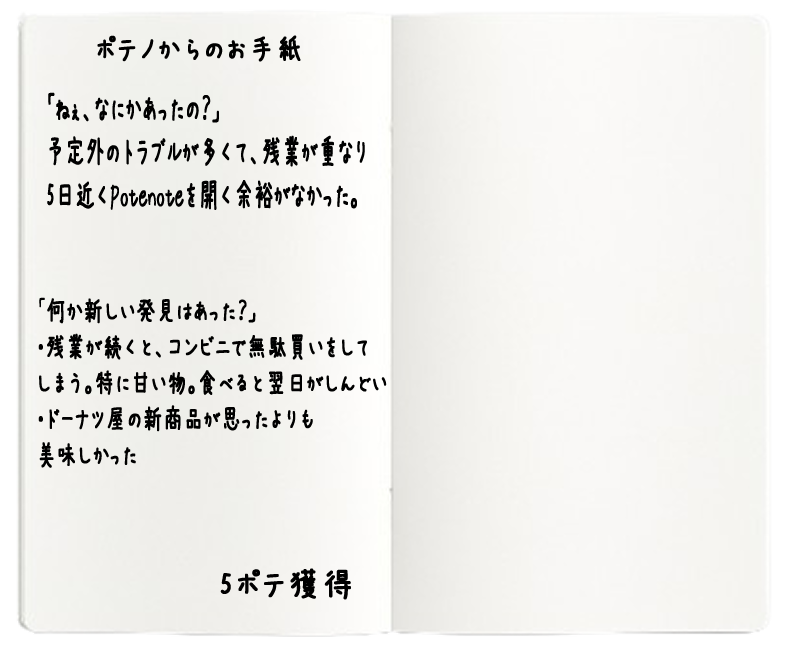 ポテノからのお手紙
「ねぇ、なにかあったの?」
予定外のトラブルが多くて、残業が重なり
5日近くPotenoteを開く余裕がなかった。
「何か新しい発見はあった?」
・残業が続くと、コンビニで無駄買いをして
しまう。特に甘い物。食べると翌日がしんどい
・ドーナツ屋の新商品が思ったよりも
美味しかった
5ポテ獲得